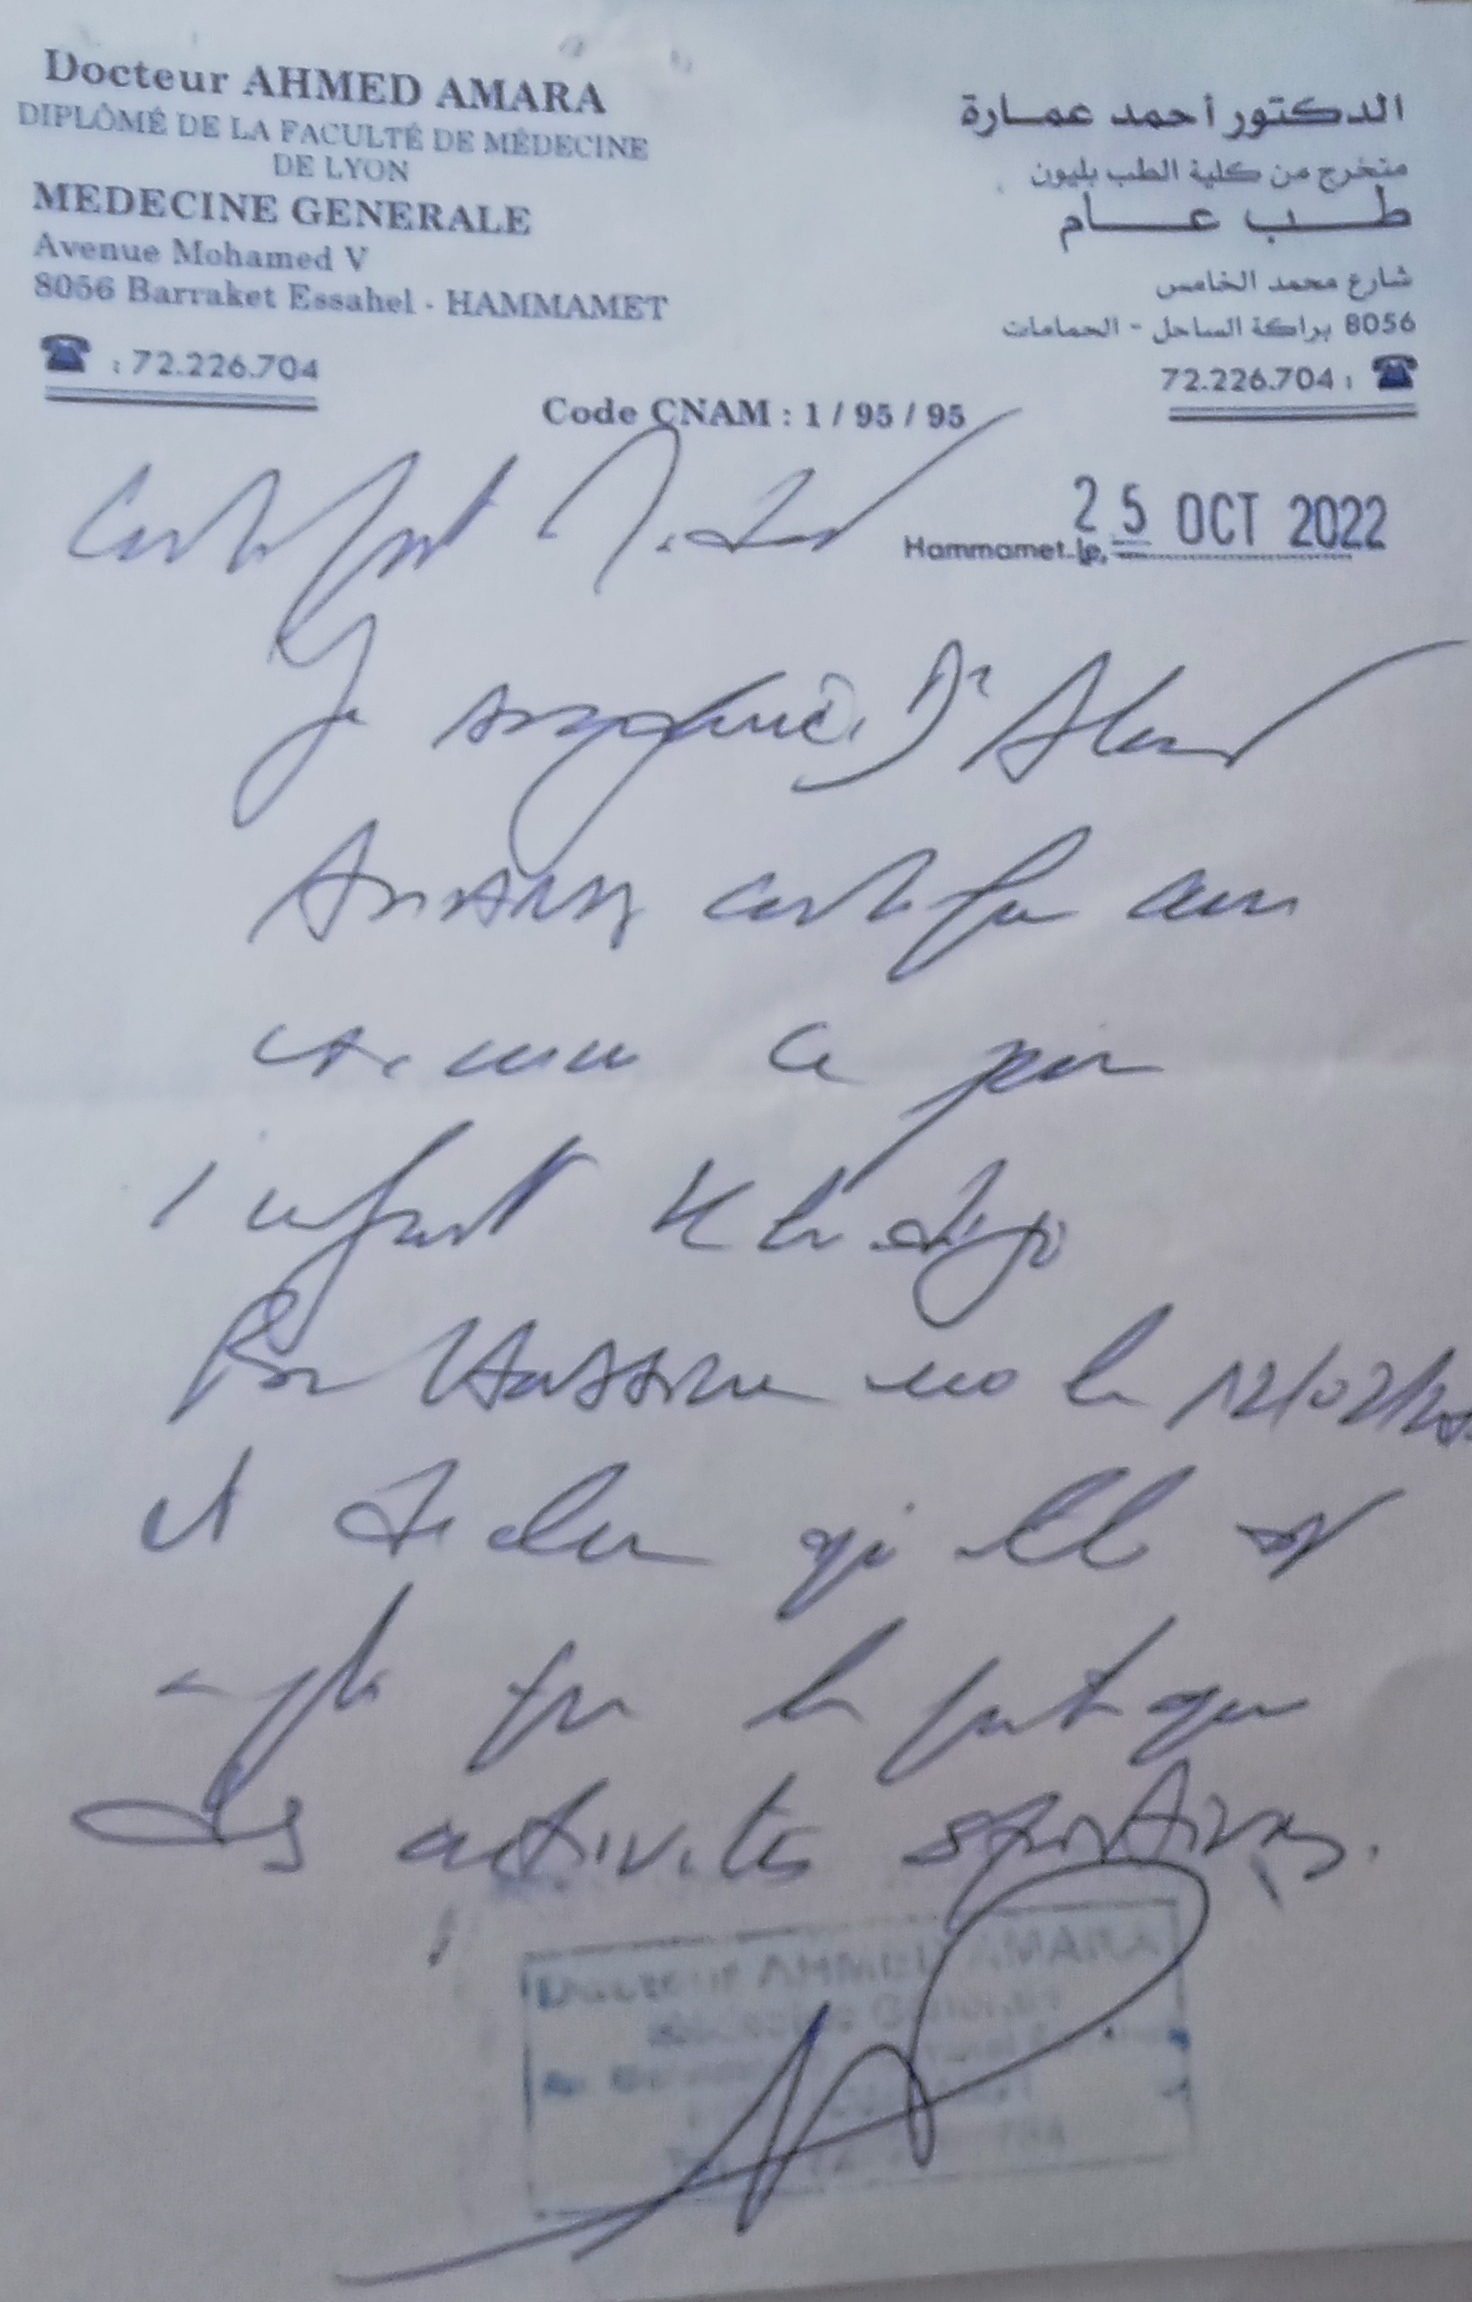 Docteur AHMED AMARA
DIPLÔMÉ DE LA FACULTÉ DE MÉDECINE
DE LYON
MEDECINE GENERALE
Avenue Mohamed V
8056 Barraket Essahel - HAMMAMET
☎ : 72.226.704
الدكتور أحمد عمارة
متخرج من كلية الطب بليون
طب عام
شارع محمد الخامس
8056 براكة الساحل - الحمامات
72.226.704 : ☎
Code CNAM : 1 / 95 / 95
Hammamet le, 25 OCT 2022
Certificat Médical
Je soussigné Dr Ahmed
Amara certifie avoir
examiné ce jour
l'enfant Khadija
Ben Hassine née le 12/02/
et déclare qu'elle est
apte pour la pratique
des activités sportives.
Docteur AHMED AMARA